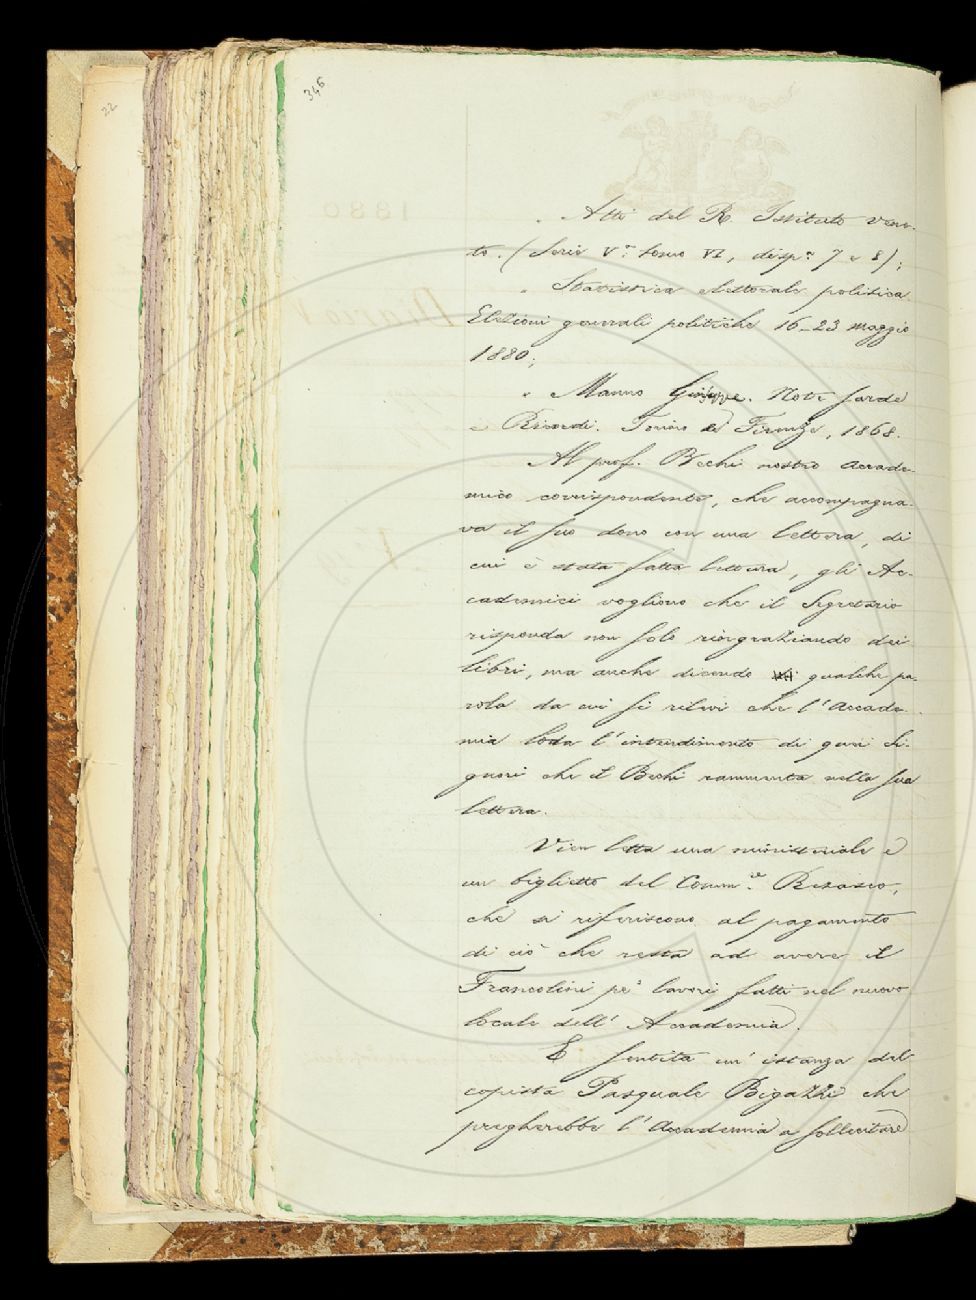 22
346
„ Atti del R. Istituto Vene-
to. (Serie V.ª tomo VI, disp.ª 7 e 8);
„ Statistica elettorale politica
Elezioni generali politiche 16-23 maggio
1880;
„ Manno Giuseppe. Note sarde
e Ricordi. Torino e Firenze, 1868.
Al prof. Bechi nostro accade-
mico corrispondente, che accompagna-
va il suo dono con una lettera, di
cui è stata fatta lettura, gli Ac-
cademici vogliono che il Segretario
risponda non solo ringraziando dei
libri, ma anche dicendo qualche pa-
rola da cui si rilevi che l'Accade-
mia loda l'intendimento di quei Si-
gnori che il Bechi rammenta nella sua
lettera.
Vien letta una ministeriale e
un biglietto del Comm.re Rezasco,
che si riferiscono al pagamento
di ciò che resta ad avere il
Francolini pe' lavori fatti nel nuovo
locale dell'Accademia.
È sentita un'istanza del
copista Pasquale Bigazzi che
pregherebbe l'Accademia a sollecitare